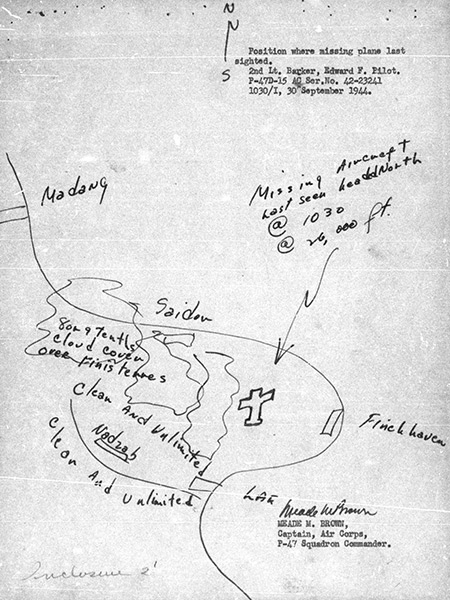 N
S
Position where missing plane last
sighted.
2nd Lt. Barker, Edward F. Pilot.
P-47D-15 AC Ser.No. 42-23241
1030/I, 30 September 1944.
Missing Aircraft
Last seen headdNorth
@ 1030
@ 26,000 ft.
Madang
Saidor
cloud cover
over Finisterres
Clear And Unlimited
Nadzab
Clear And Unlimited
Finchhaven
Lae
Meade M Brown
MEADE M. BROWN,
Captain, Air Corps,
P-47 Squadron Commander.
Inclosure 2'